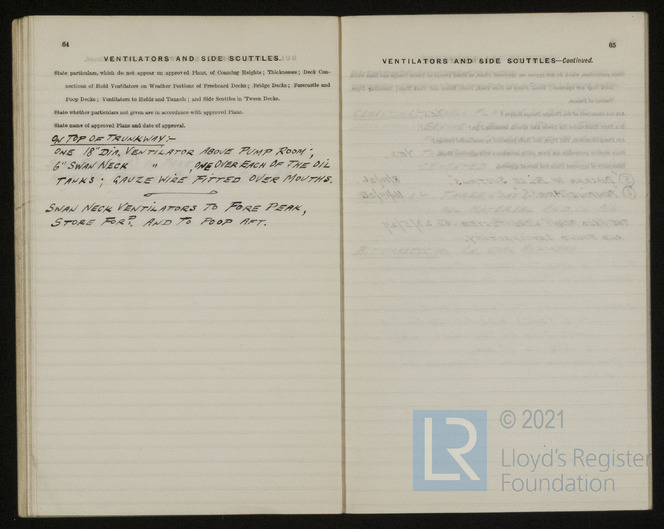 64
VENTILATORS AND SIDE SCUTTLES.
State particulars, which do not appear on approved Plans, of Coaming Heights; Thicknesses; Deck Con-
nections of Hold Ventilators on Weather Portions of Freeboard Decks; Bridge Decks; Forecastle and
Poop Decks; Ventilators to Holds and Tunnels; and Side Scuttles in 'Tween Decks.
State whether particulars not given are in accordance with approved Plans.
State name of approved Plans and date of approval.
ON TOP OF TRUNKWAY:-
ONE 18" DIA. VENTILATOR ABOVE PUMP ROOM;
6" SWAN NECK " , ONE OVER EACH OF THE OIL
TANKS; GAUZE WIRE FITTED OVER MOUTHS.
SWAN NECK VENTILATORS TO FORE PEAK,
STORE FORD. AND TO POOP AFT.
65
VENTILATORS AND SIDE SCUTTLES—Continued.
LR
© 2021
Lloyd's Register
Foundation